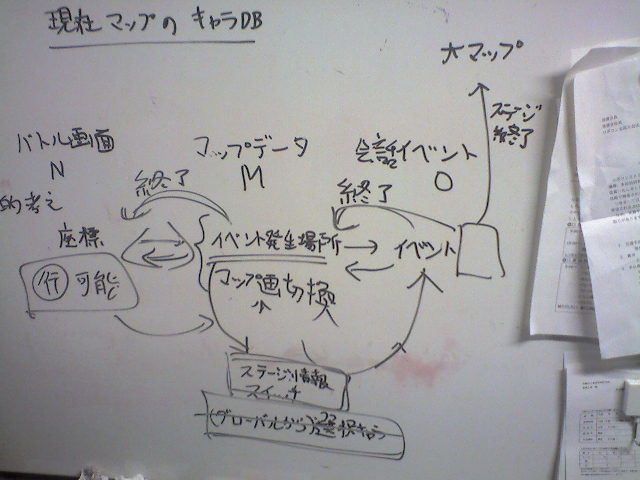 現在マップの キャラDB
大マップ
ステージ
終了
バトル画面
N
マップデータ
M
会話イベント
O
終了
終了
的考え
座標
イベント発生場所
イベント
行 可能
マップ画切換
ステージ情報
スイッチ
(グローバルから)